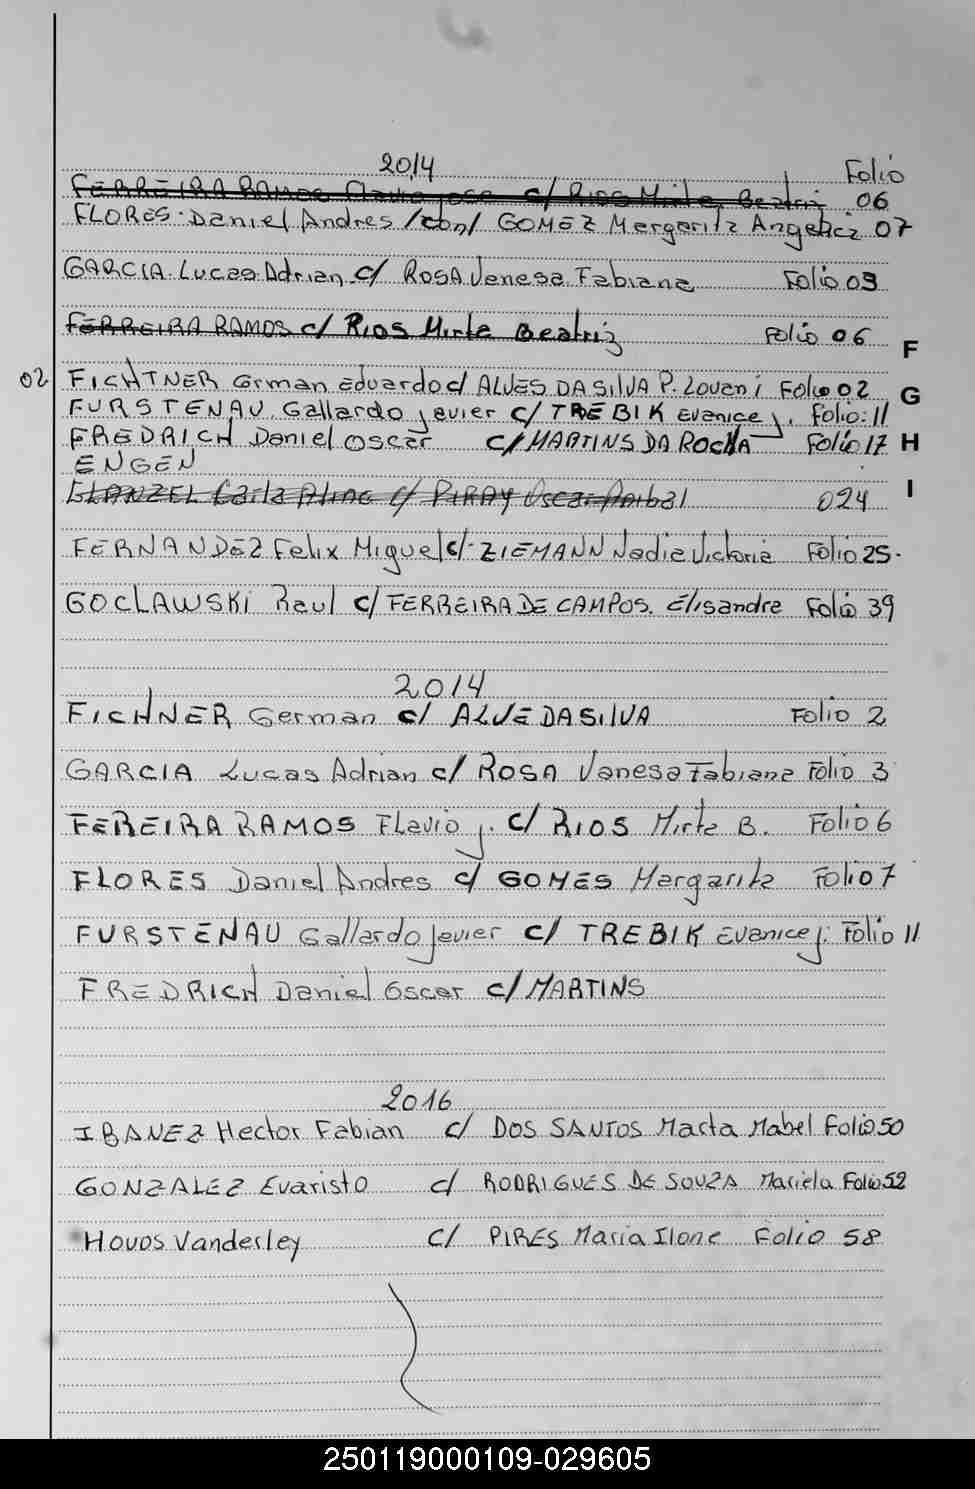 2014 Folio
FERREIRA RAMOS Flavio Jose c/ RIOS Mirta Beatriz 06
FLORES Daniel Andres /con/ GOMEZ Margarita Angelica 07
GARCIA Lucas Adrian c/ ROSA Vanesa Fabiana Folio 03
FERREIRA RAMOS c/ RIOS Mirta Beatriz Folio 06
F
02 FICHTNER German Eduardo c/ ALVES DA SILVA P. Loveni Folio 02
G
FURSTENAU Gallardo Javier c/ TREBIK Evanice J. Folio: 11
FREDRICH Daniel Oscar c/ MARTINS DA ROCHA Folio 17
H
ENGEN
GLANZEL Carla Aline c/ PIRAY Oscar Anibal 024
I
FERNANDEZ Felix Miguel c/ ZIEMANN Nadie Victoria Folio 25.
GOCLAWSKI Raul c/ FERREIRA DE CAMPOS. Elisandra Folio 39
2014
FICHNER German c/ ALVE DA SILVA Folio 2
GARCIA Lucas Adrian c/ ROSA Vanesa Fabiana Folio 3
FEREIRA RAMOS Flavio J. c/ RIOS Mirta B. Folio 6
FLORES Daniel Andres c/ GOMES Margarita Folio 7
FURSTENAU Gallardo Javier c/ TREBIK Evanice J. Folio 11
FREDRICH Daniel Oscar c/ MARTINS
2016
IBANEZ Hector Fabian c/ DOS SANTOS Marta Mabel Folio 50
GONZALEZ Evaristo c/ RODRIGUES DE SOUZA Mariela Folio 52
HOVOS Vanderley c/ PIRES Maria Ilone Folio 58
250119000109-029605